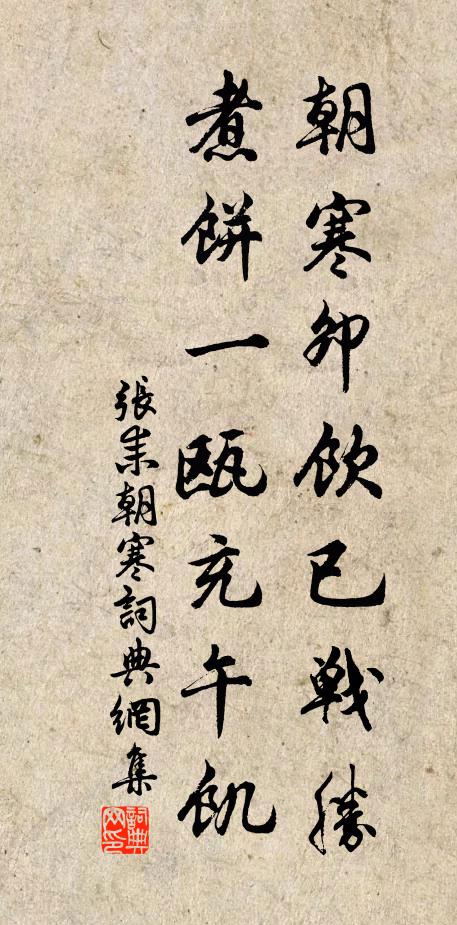 朝寒卯飲已戰勝
煮餅一甌充午飢
張耒朝寒詞典網集
詞典网印